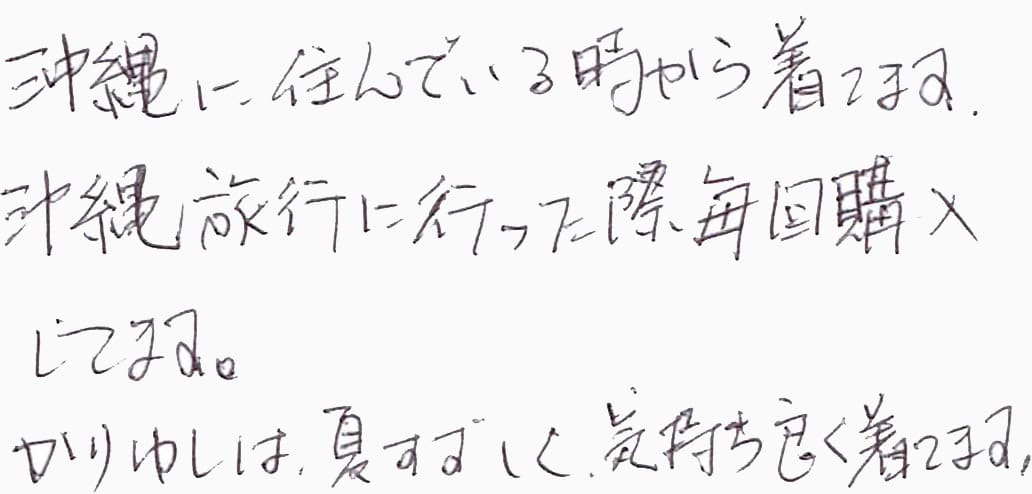 沖縄に住んでいる時から着てます.
沖縄旅行に行った際、毎回購入
してます。
かりゆしは、夏すずしく、気持ち良く着てます,